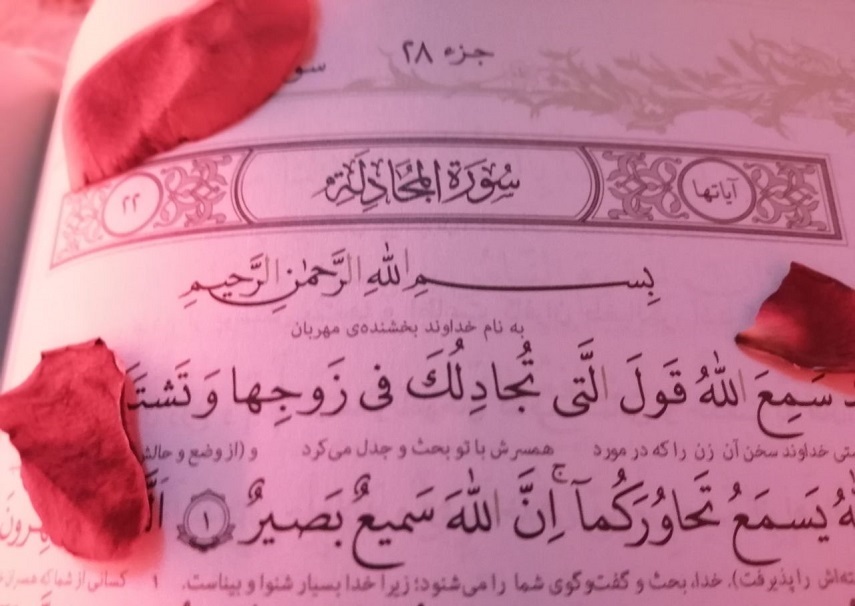 جزء ۲۸
آیاتها سُورَةُ المُجَادِلَةِ ۲۲
بِسمِ اللّٰهِ الرَّحمٰنِ الرَّحیمِ
به نام خداوند بخشنده‌ی مهربان
سَمِعَ اللّٰهُ قَولَ الَّتی تُجادِلُكَ فی زَوجِها وَ تَشتَ
خداوند سخن آن زن را که در مورد همسرش با تو بحث و جدل می‌کرد و (از وضع و حالش
یَسمَعُ تَحاوُرَکُمآ ۚ اِنَّ اللّٰهَ سَمیعٌ بَصیرٌ ۱
را پذیرفت). خدا، بحث و گفت‌وگوی شما را می‌شنود؛ زیرا خدا بسیار شنوا و بیناست. ۱ کسانی از شما که